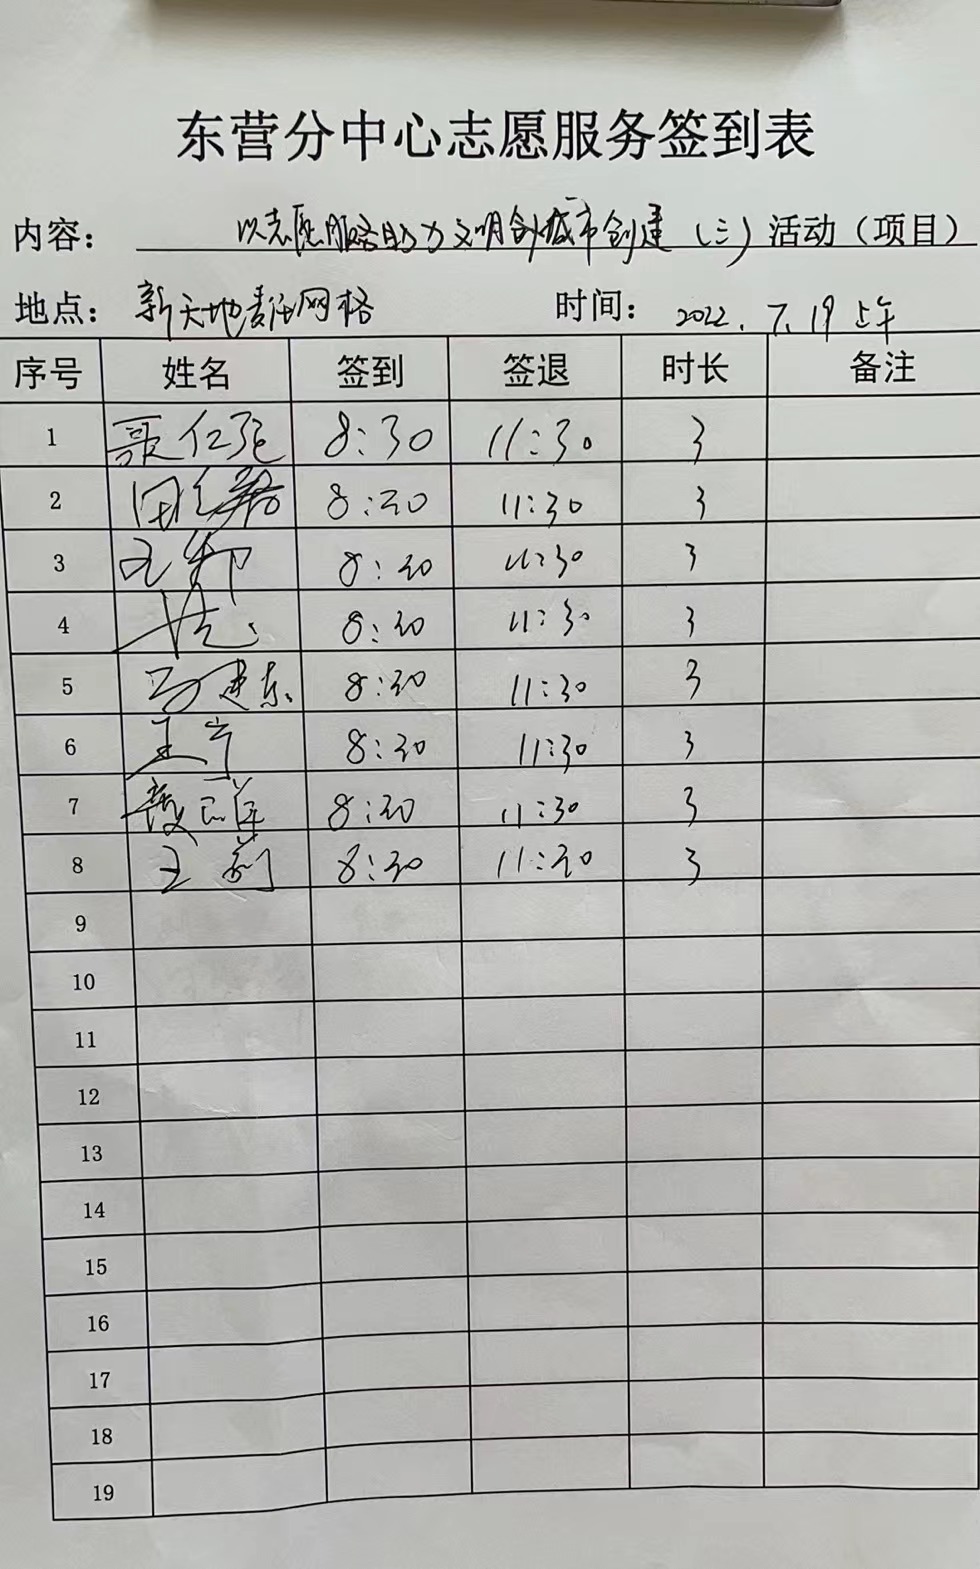 东营分中心志愿服务签到表
内容： 以志愿服务助力文明创城市创建（三）活动（项目）
地点： 新天地责任网格 时间： 2022.7.19上午
序号 姓名 签到 签退 时长 备注
1 8:30 11:30 3
2 8:30 11:30 3
3 8:30 11:30 3
4 8:30 11:30 3
5 马建东 8:30 11:30 3
6 王宁 8:30 11:30 3
7 8:30 11:30 3
8 王莉 8:30 11:30 3
9
10
11
12
13
14
15
16
17
18
19